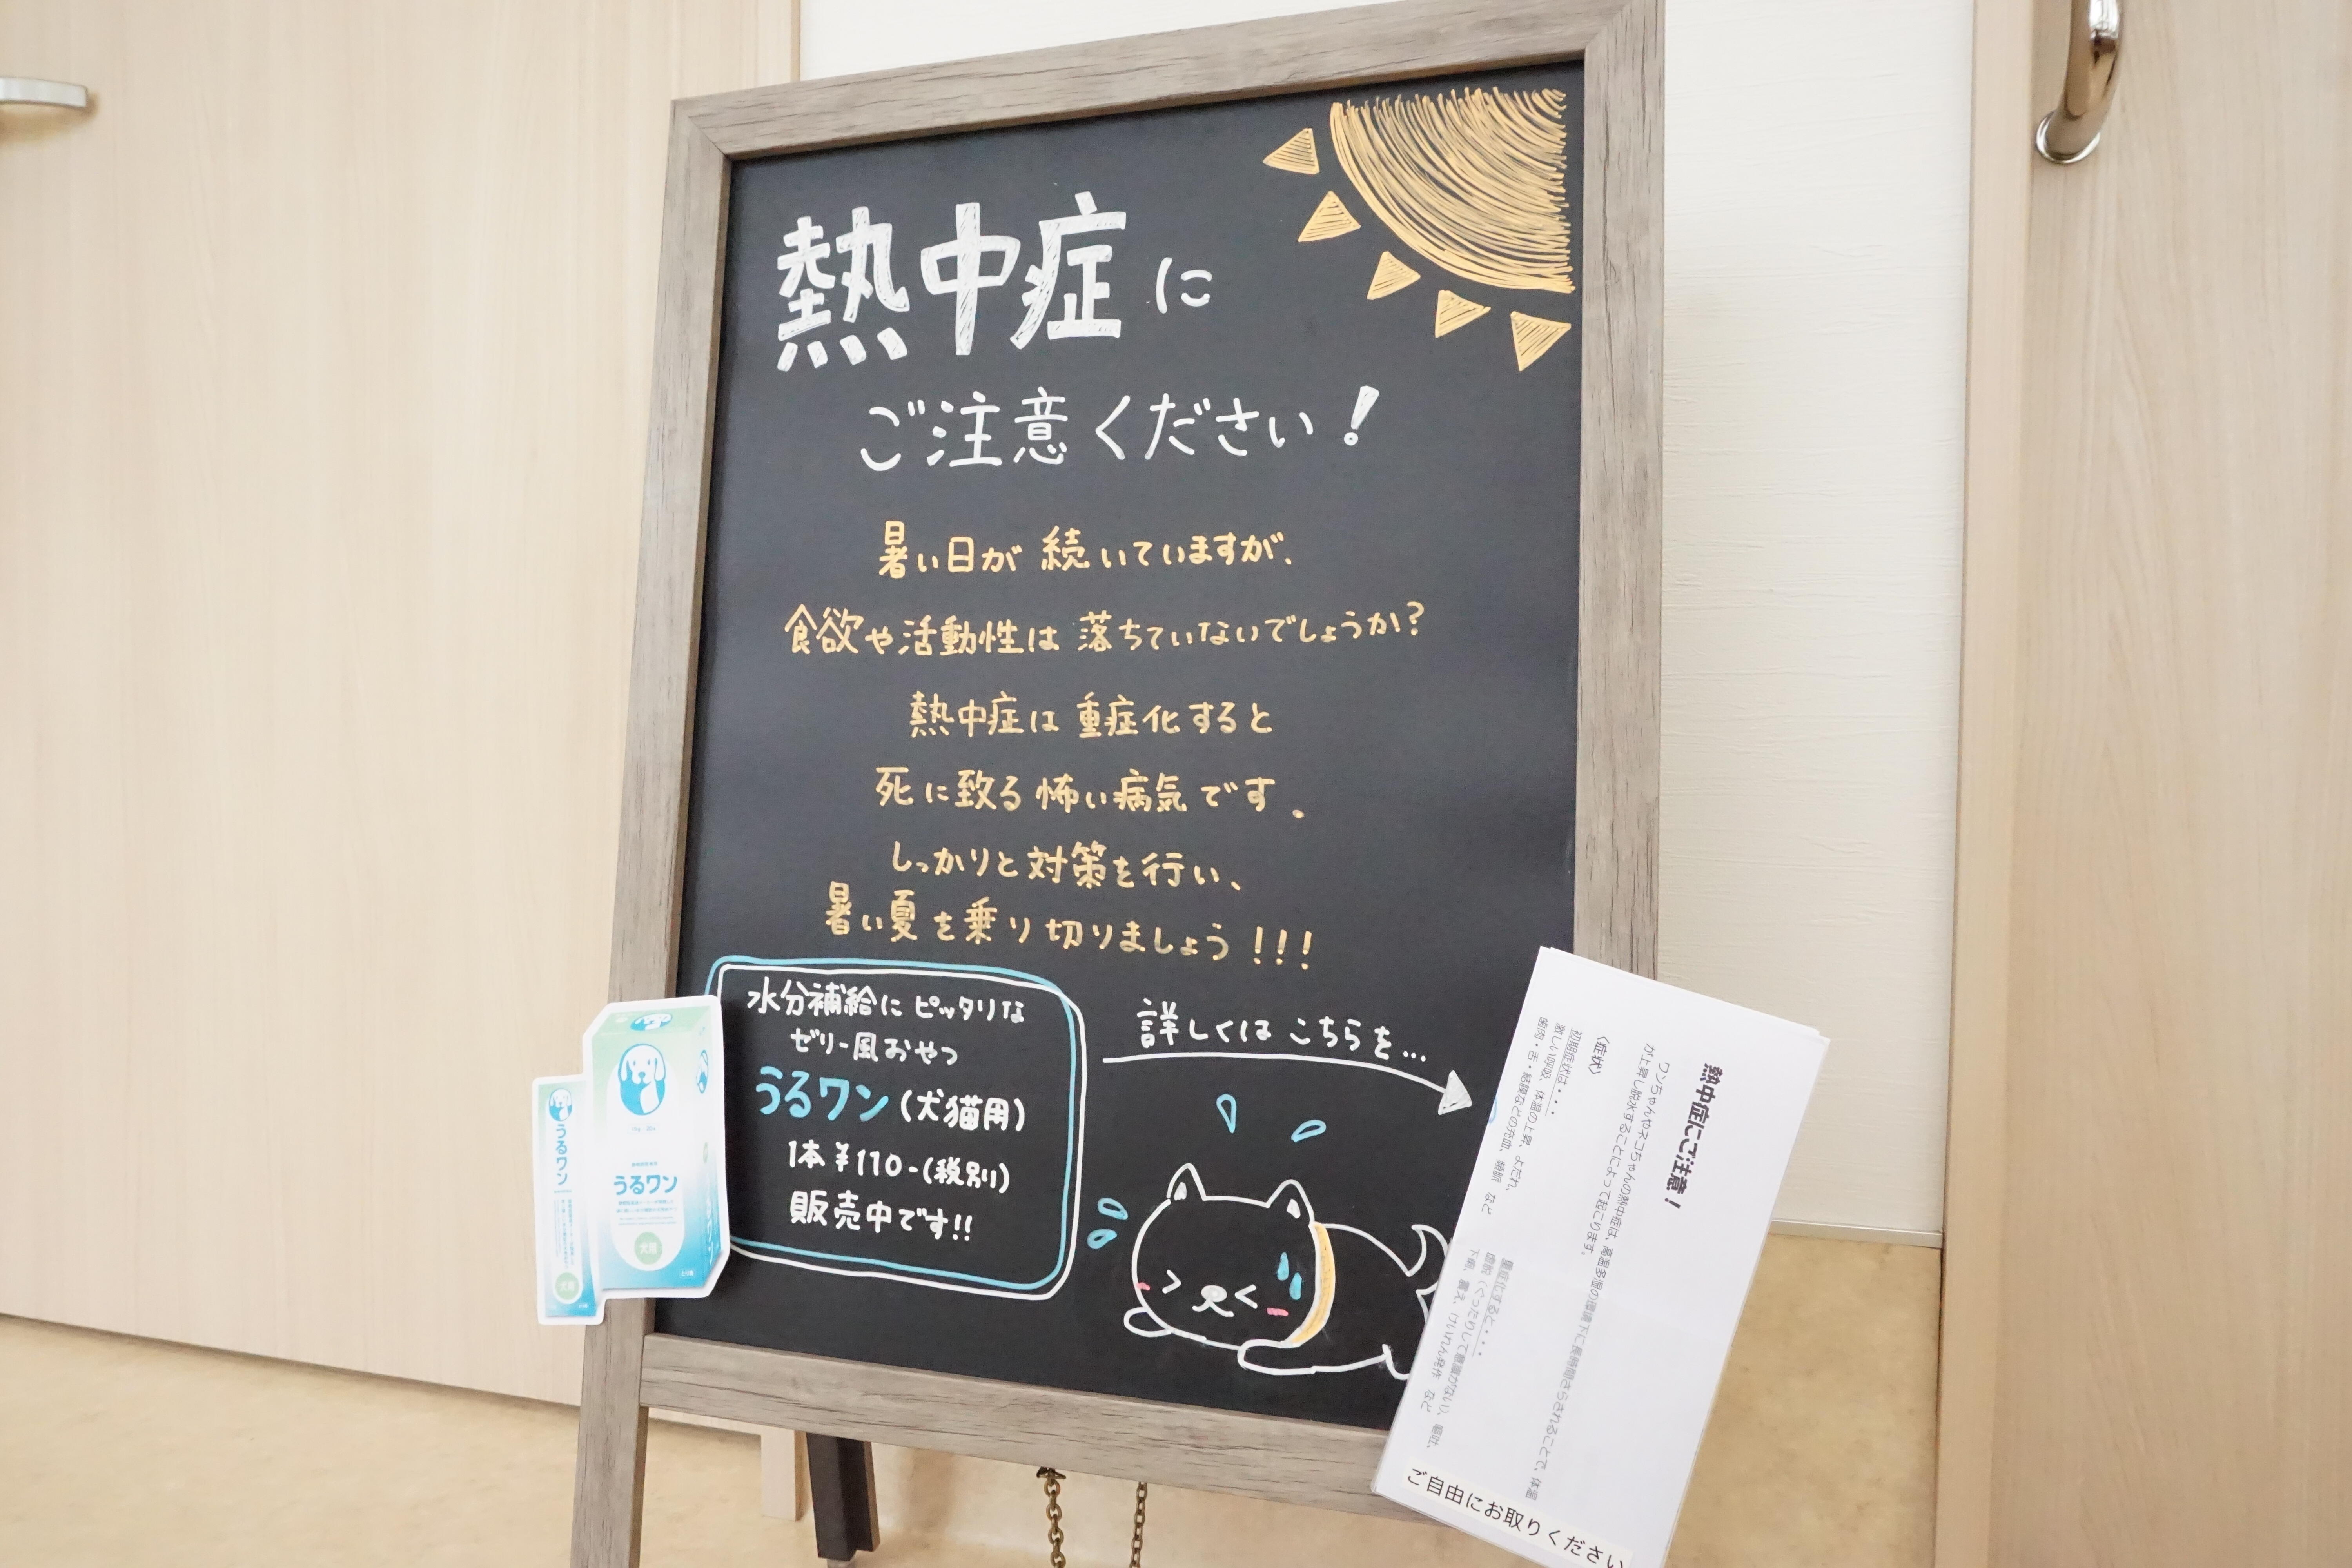 熱中症に
ご注意ください!
暑い日が続いていますが、
食欲や活動性は落ちていないでしょうか?
熱中症は重症化すると
死に致る怖い病気です。
しっかりと対策を行い、
暑い夏を乗り切りましょう!!!
水分補給にピッタリな
ゼリー風おやつ
うるワン(犬猫用)
1本¥110-(税別)
販売中です!!
詳しくはこちらを...
うるワン
犬猫
うるワン
犬猫
熱中症にご注意!
ワンちゃんやネコちゃんの熱中症は、高温多湿の環境下に長時間さらされることで、体温
が上昇し脱水することによって起こります。
〈症状〉
初期症状は・・・
激しい呼吸、体温の上昇、よだれ、
歯肉・舌・結膜などの充血、頻脈 など
重症化すると・・・
虚脱(ぐったりして意識がない)、嘔吐、
下痢、震え、けいれん発作 など
ご自由にお取りください